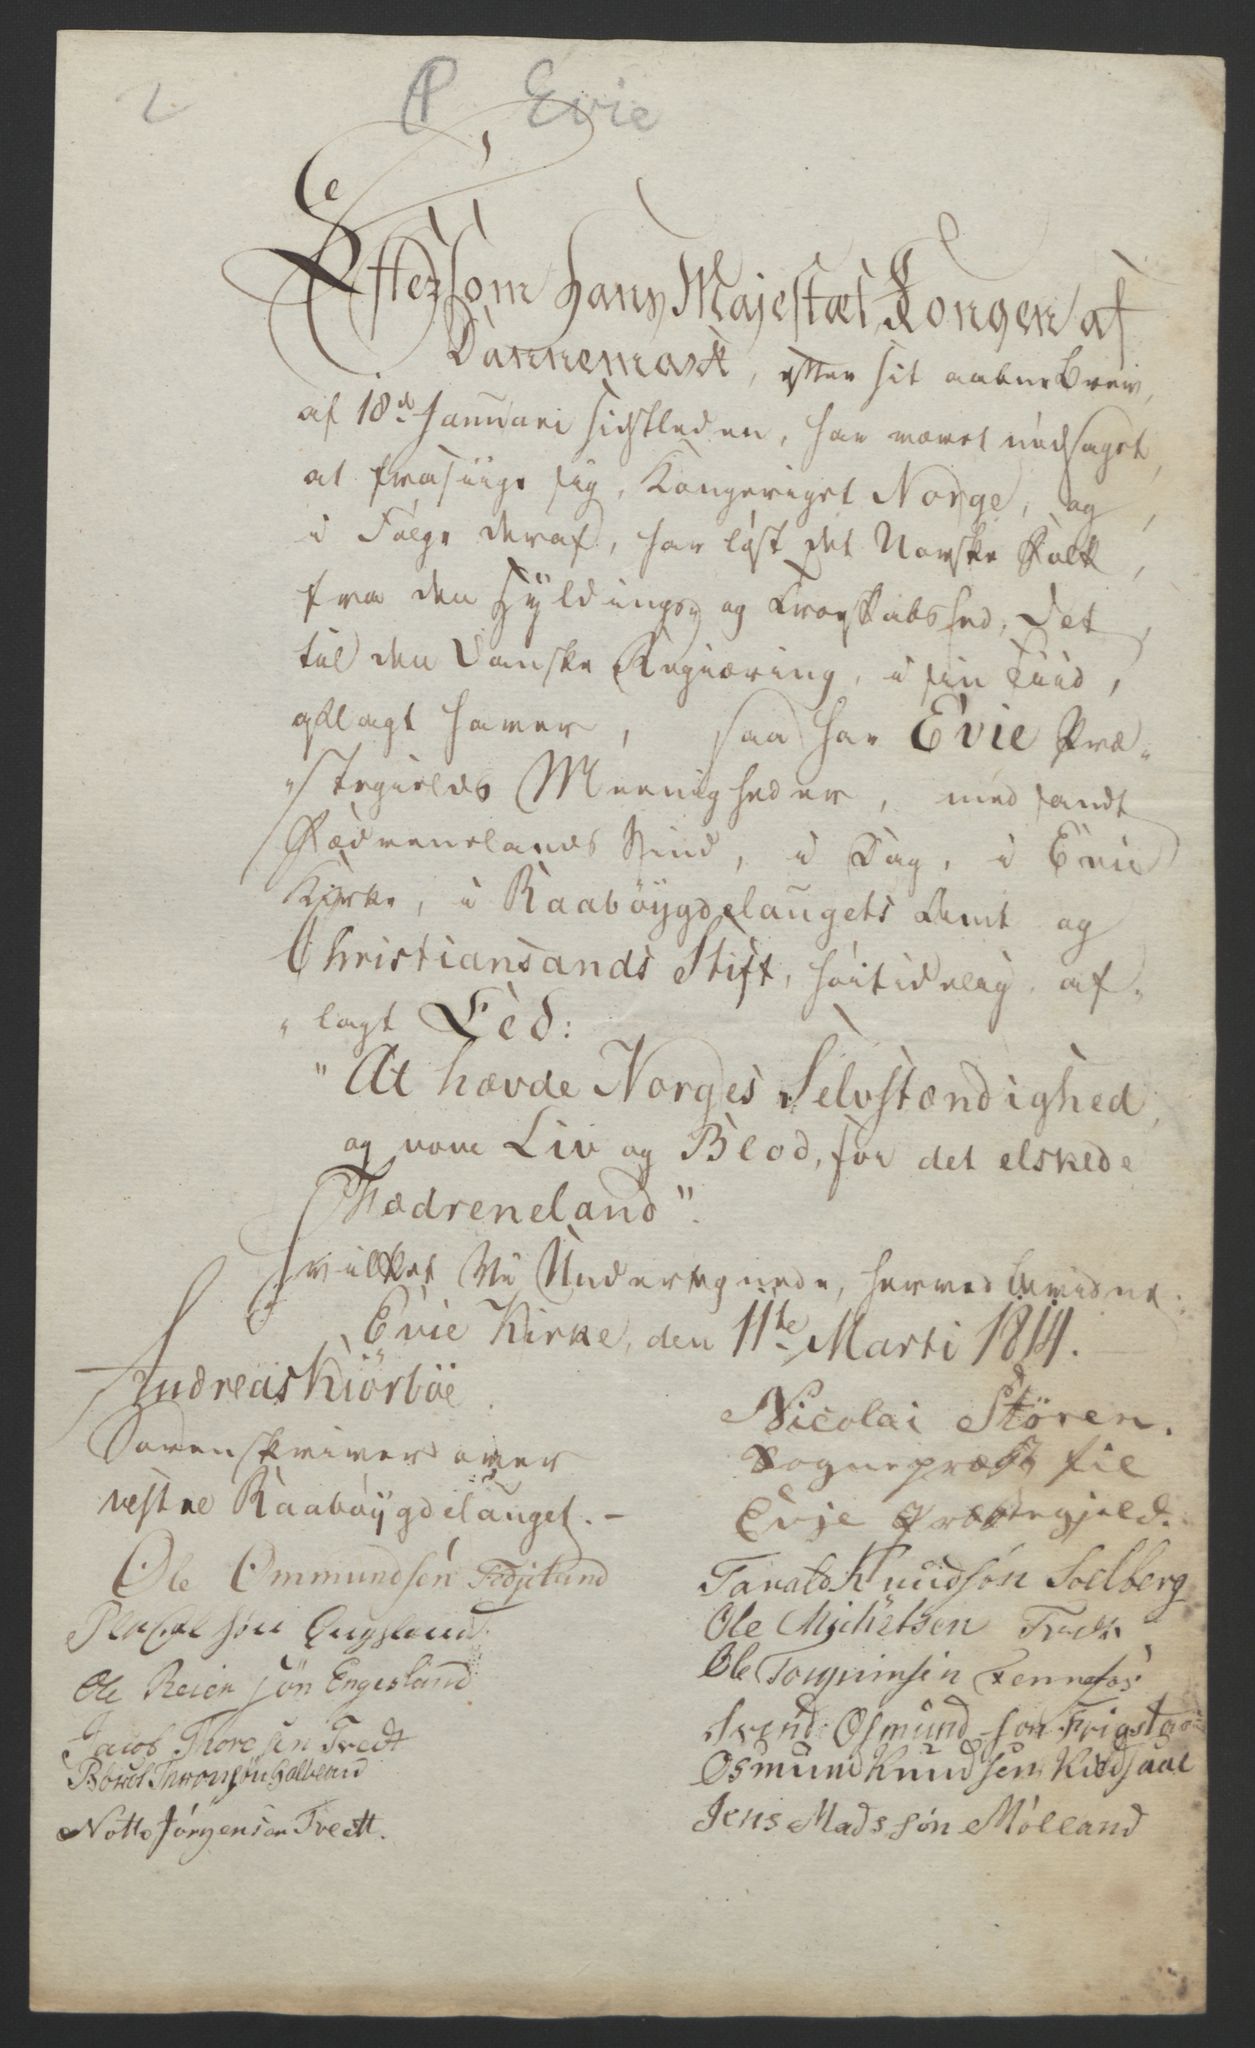 2 Evie
Eftersom Hans Majestæt Kongen af
Dannemark, efter sit aabne Brev,
af 18d Januari sidstleden, har været nødsaget,
at frasiige sig, Kongeriget Norge, og,
i Følge deraf, har løst det Norske Folk,
fra den Hyldings og Troeskabs Eed, det,
til den Danske Regiæring, i sin Tiid,
aflagt haver, saa har Evie Præ-
-stegields Meenigheder, med sandt
Fædrenelands Sind, i Dag, i Evie
Kirke, i Raabøygdelaugets Amt og
Christiansands Stift, høitidelig af-
-lagt Eed:
"At hævde Norges Selvstændighed,
og vove Liv og Blod, for det elskede
Fædreneland".
Hvilket Vi Undertegnede, herved bevidne.
Evie Kirke, den 11te Marti 1814.
Andreas Kiörböe.
Sorenskriver over
vestre Raabøygdelauget.-
Nicolai Stören.
Sognepræst til
Evje Præstegjeld.
Ole Ommundsén Fidjeland
søn Engesland.
Ole Reiersøn Engesland
Jacob Thoresen Tvedt
Notto Jörgensen Tveitt.
Tarald Knudsøn Soelberg
Ole Michelsen Tvedt
Ole Torgrimsen Fennefos
Svend Osmundson Frigstad
Osmund Knudsen Kiedsaae
Jens Madssøn Mölland